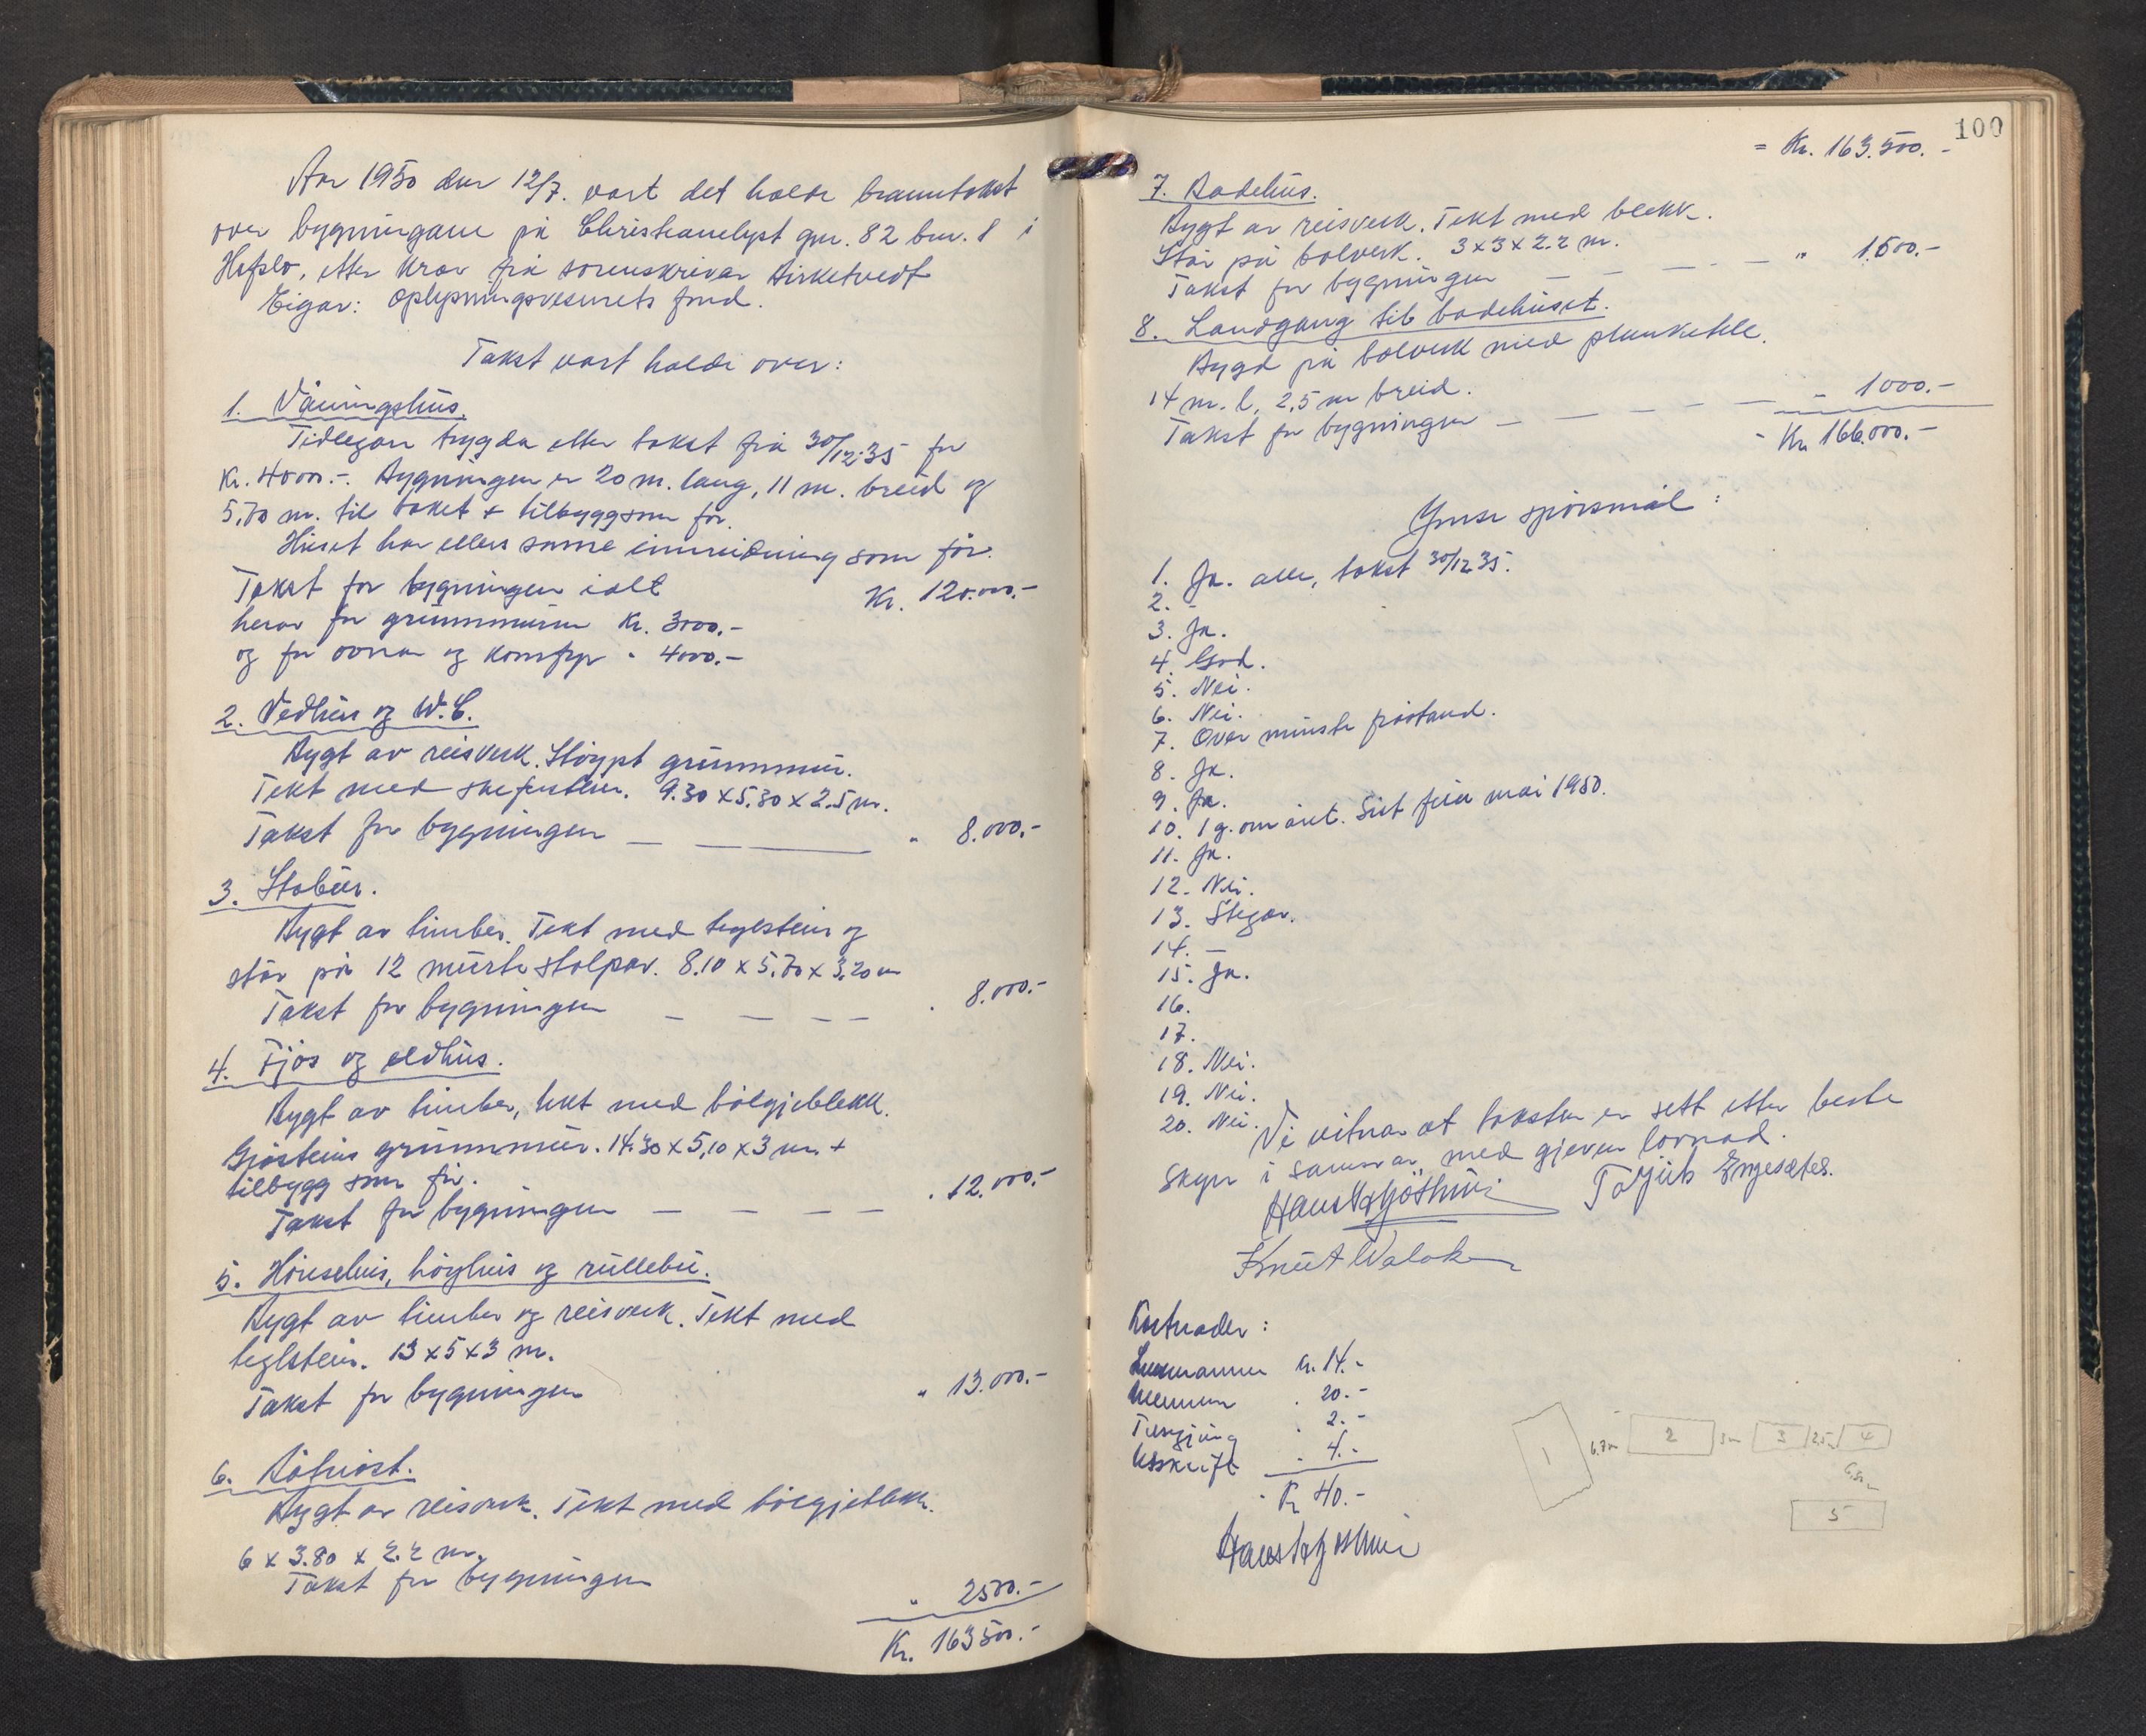 Aar 1950 den 12/7. vart det halde branntakst
over bygningane på Christianelyst gnr. 82 bnr. 8 i
Hafslo, etter krav frå sorenskrivar Birketvedt
Eigar: Oplysningsvesenets fond.
Takst vart halde over:
1. Våningshus.
Tidlegare trygda etter takst frå 30/12.35 for
Kr. 4000.-. Bygningen er 20 m. lang, 11 m. breid og
5,70 m. til taket + tilbygg som før.
Huset har ellers same innreidning som før.
Takst for bygningen ialt Kr. 120.000.-
herav for grunnmuren Kr. 3000.-
og for ovnar og komfyr " 4000.-
2. Vedhus og W.C.
Bygt av reisverk. Støypt grunnmur.
Tekt med skiferheller. 9.30 x 5,80 x 2.5 m.
Takst for bygningen — — " 8.000.-
3. Stabur.
Bygt av timber. Tekt med teglstein og
står på 12 murte stolpar. 8.10 x 5.70 x 3.20 m
Takst for bygningen — — — — " 8.000.-
4. Fjøs og eldhus.
Bygt av timber, tekt med bølgjeblekk.
Gråsteins grunnmur. 14.30 x 5,10 x 3 m. +
tilbygg som før.
Takst for bygningen — — — — " 12.000.-
5. Hønsehus, høyhus og rullebu.
Bygt av timber og reisverk. Tekt med
teglstein. 13 x 5 x 3 m.
Takst for bygningen " 13.000.-
6. Båtnaust.
Bygt av reisverk. Tekt med bølgjeblekk.
6 x 3.80 x 2.2 m.
Takst for bygningen
" 2500.-
Kr. 163500.-
100
= Kr. 163.500.-
7. Badehus.
Bygt av reisverk. Tekt med blekk.
Står på bolverk. 3 x 3 x 2.2 m.
Takst for bygningen — — — — — " 1.500.-
8. Landgang til badehuset.
Bygd på bolverk med plankehell.
14 m. l. 2,5 m breid.
Takst for bygningen — — — — — " 1000.-
- Kr. 166.000.-
Ymse spørsmål :
1. Ja. alle, takst 30/12 35.
2. -
3. Ja.
4. God.
5. Nei.
6. Nei.
7. Over minste fråstand.
8. Ja.
9. Ja.
10. 1 g. om året. Sist feia mai 1950.
11. Ja.
12. Nei.
13. Stegar.
14. —
15. Ja.
16.
17.
18. Nei.
19. Nei.
20. Nei.
Vi vitnar at taksten er sett etter beste
skyn i samsvar med gjeven lovnad.
Torjuls Engesæter.
Knut Walaker
Kostnader :
Lensmannen kr. 14.-
Mennene " 20.-
Tinglysing " 2.-
Utskrift " 4.-
- Kr 40.-
1 6,7m 2 3m 3 2,5m 4
5